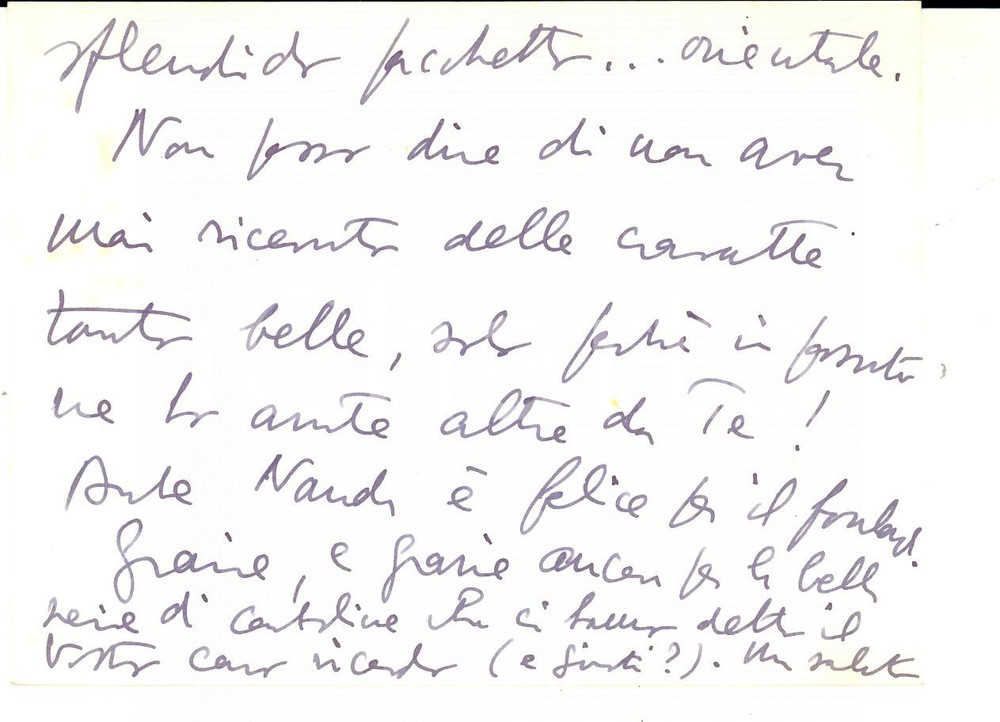 splendido pacchetto... orientale.
Non posso dire di non aver
mai ricevuto delle cravatte
tanto belle, solo perché in passato
ne ho avute altre da Te!
Anche Nando è felice per il foulard.
Grazie, e grazie ancora per la bella
serie di cartoline che ci hanno detto il
Vostro caro ricordo (e giusti?). Un saluto